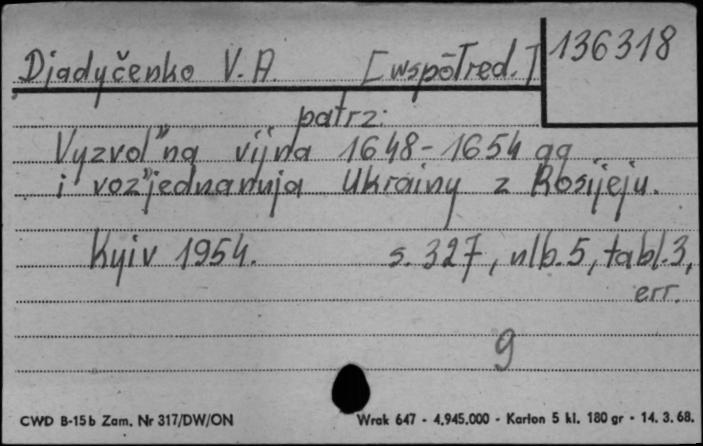 136318
Djadyčenko V. A. [współred.]
patrz:
Vyzvol"na vijna 1648-1654 gg
i voz"jednannja Ukrainy z Rosijeju.
Kyiv 1954. s. 327, nlb. 5, tabl. 3,
err.
9
CWD B-15b Zam. Nr 317/DW/ON Wrak 647 - 4.945.000 - Karton 5 kl. 180 gr - 14. 3. 68.